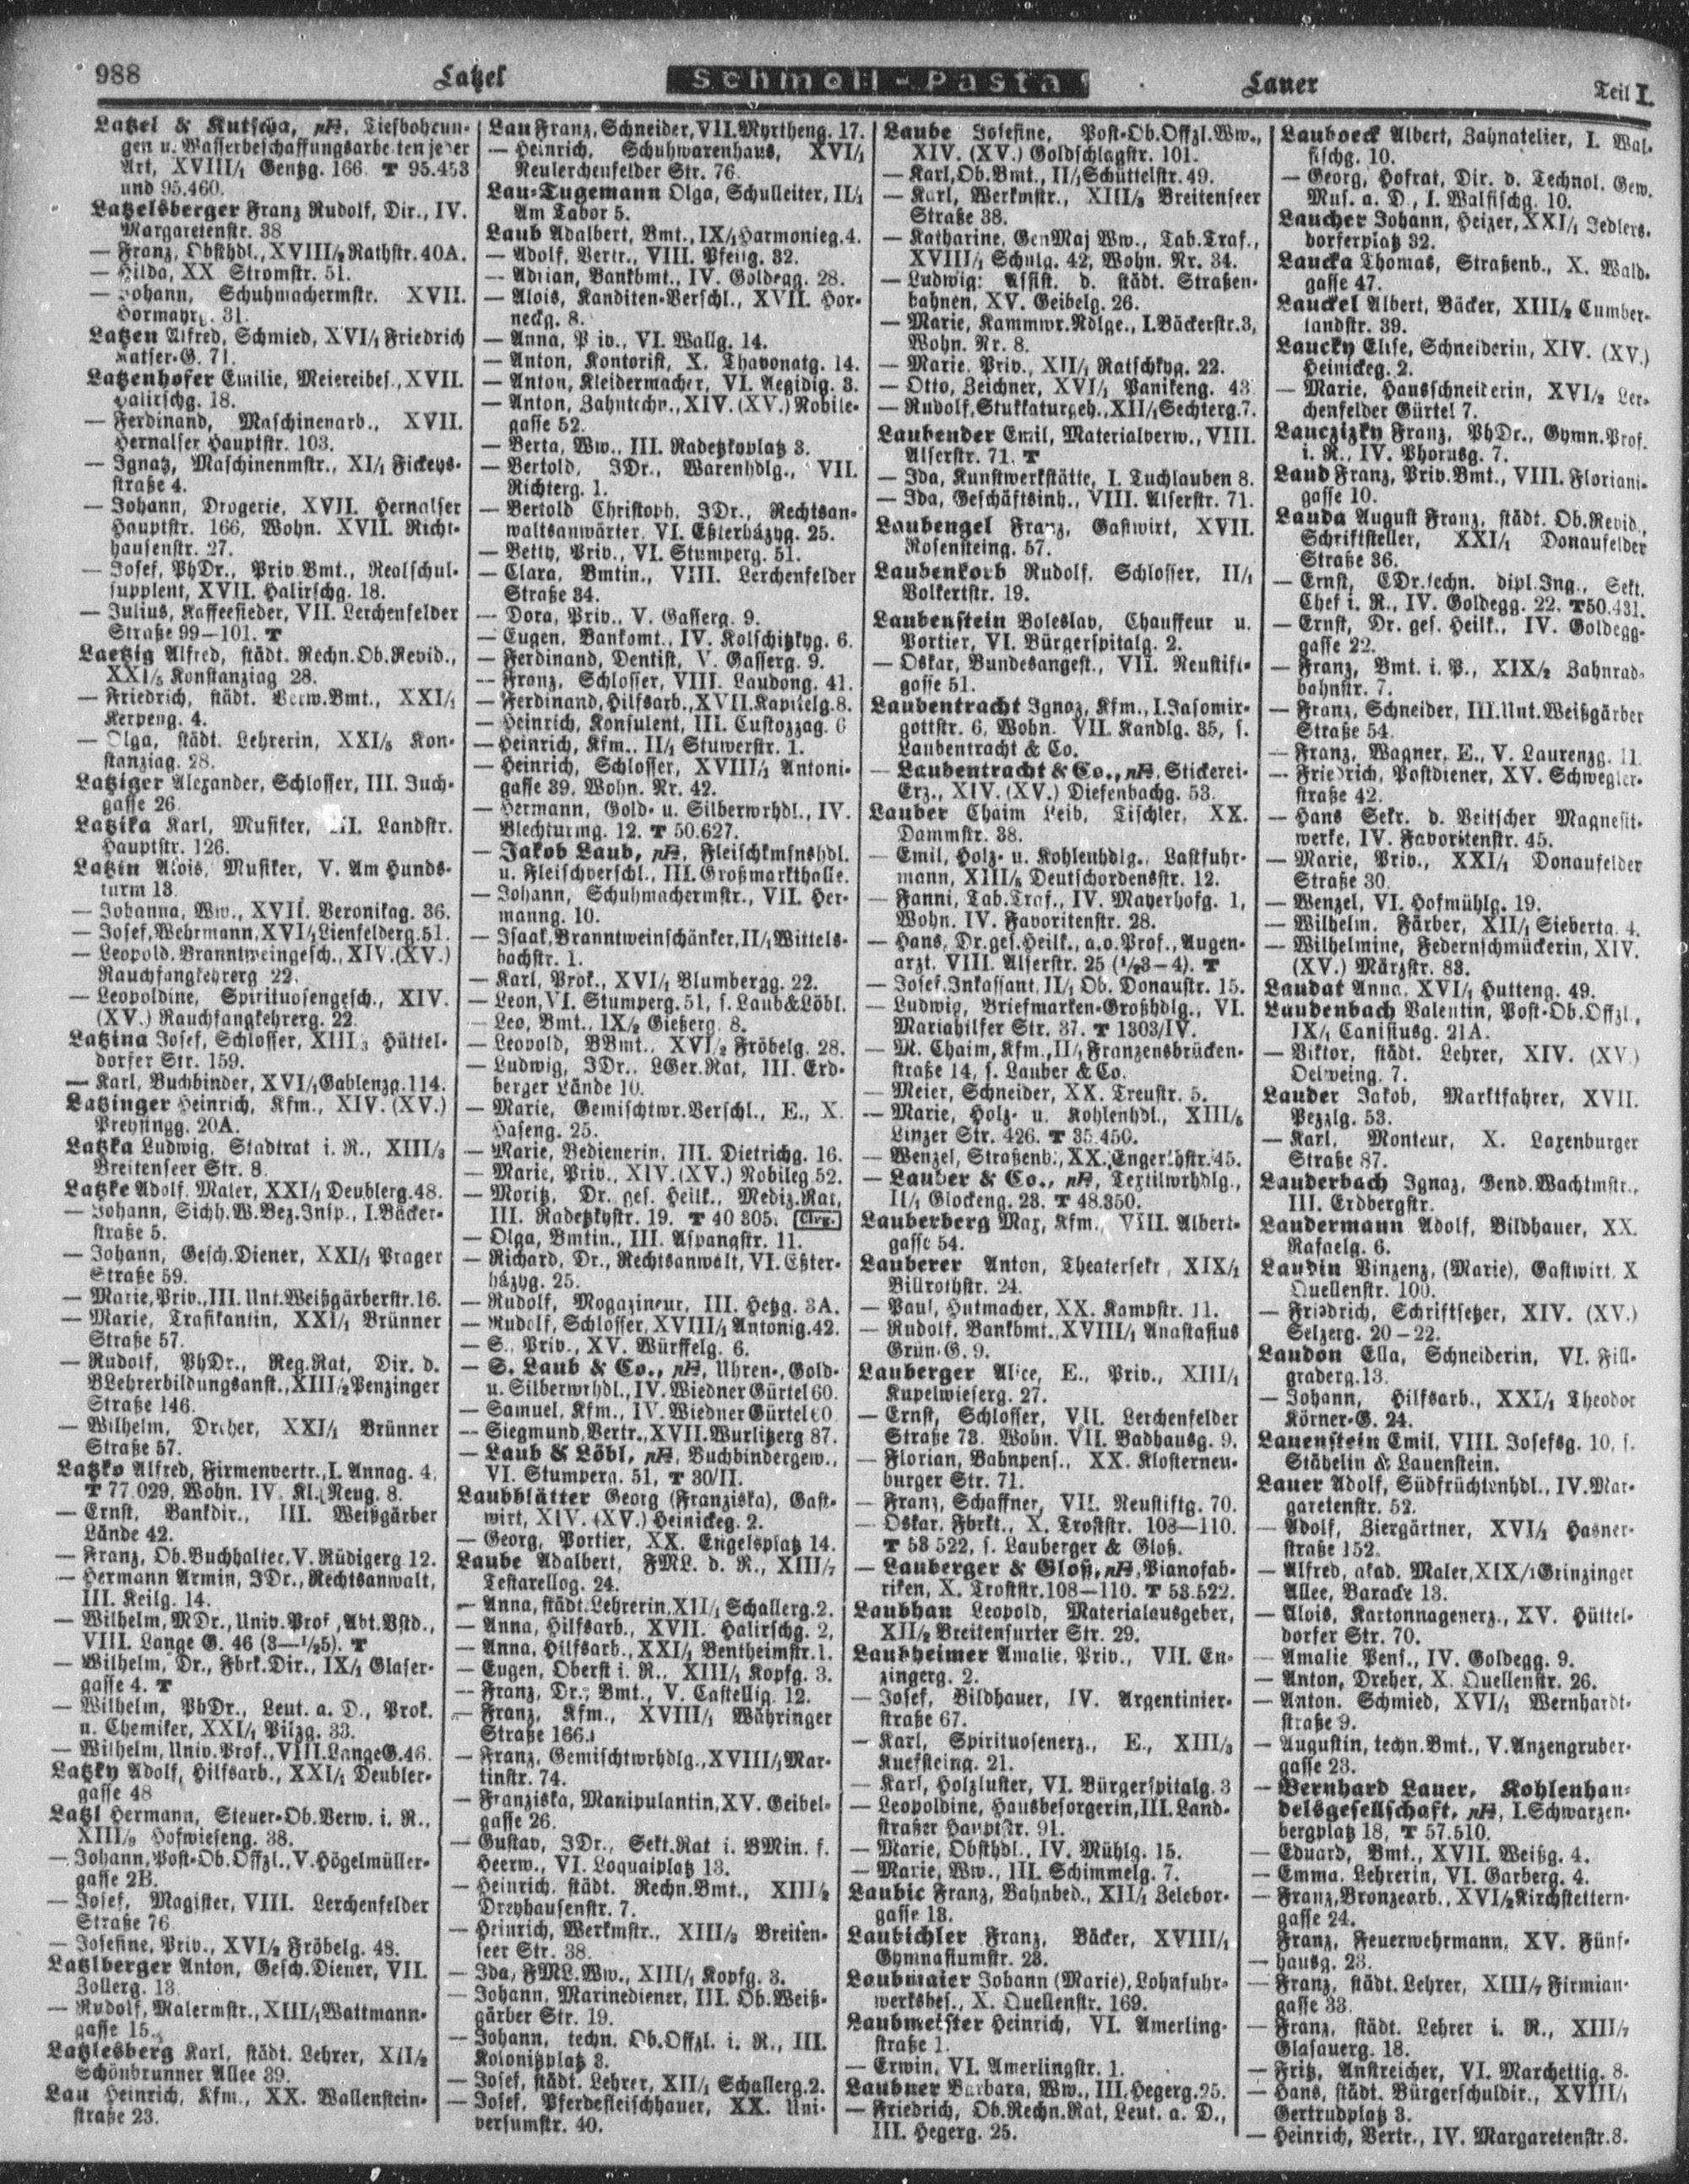 988
Latzel
Schmoll-Pasta
Lauer
Teil I.
Latzel & Kutscha, Tiefbohrun-
gen u. Wasserbeschaffungsarbeiten jeder
Art, XVIII/1 Gentzg. 166. T 95.453
und 95.460.
Latzelsberger Franz Rudolf, Dir., IV.
Margaretenstr. 38
— Franz, Obsthdl., XVIII/2 Rathstr. 40A.
— Hilda, XX Stromstr. 51.
— Johann, Schuhmachermstr. XVII.
Hormayrg. 31.
Latzen Alfred, Schmied, XVI/1 Friedrich
Kaiser-G. 71.
Latzenhofer Emilie, Meiereibes., XVII.
Halirschg. 18.
— Ferdinand, Maschinenarb., XVII.
Hernalser Hauptstr. 103.
— Ignatz, Maschinenmstr., XI/1 Fickeys-
straße 4.
— Johann, Drogerie, XVII. Hernalser
Hauptstr. 166, Wohn. XVII. Richt-
hausenstr. 27.
— Josef, PhDr., Priv.Bmt., Realschul-
supplent, XVII. Halirschg. 18.
— Julius, Kaffeesieder, VII. Lerchenfelder
Straße 99—101. T
Laetzig Alfred, städt. Rechn.Ob.Revid.,
XXI/5 Konstanziag 28.
— Friedrich, städt. Verw.Bmt., XXI/1
Kerpeng. 4.
— Olga, städt. Lehrerin, XXI/5 Kon-
stanziag. 28.
Latziger Alexander, Schlosser, III. Juch-
gasse 26.
Latzika Karl, Musiker, III. Landstr.
Hauptstr. 126.
Latzin Alois, Musiker, V. Am Hunds-
turm 13.
— Johanna, Ww., XVII. Veronikag. 36.
— Josef, Wehrmann, XVI/1 Lienfelderg. 51.
— Leopold, Branntweingesch., XIV. (XV.)
Rauchfangkehrerg 22.
— Leopoldine, Spirituosengesch., XIV.
(XV.) Rauchfangkehrerg. 22.
Latzina Josef, Schlosser, XIII/3 Hüttel-
dorfer Str. 159.
— Karl, Buchbinder, XVI/1 Gablenzg. 114.
Latzinger Heinrich, Kfm., XIV. (XV.)
Preysingg. 20A.
Latzka Ludwig, Stadtrat i. R., XIII/3
Breitenseer Str. 8.
Latzke Adolf, Maler, XXI/1 Deublerg. 48.
— Johann, Sichh.W.Bez.Insp., I. Bäcker-
straße 5.
— Johann, Gesch.Diener, XXI/1 Prager
Straße 59.
— Marie, Priv., III. Unt. Weißgärberstr. 16.
— Marie, Trafikantin, XXI/1 Brünner
Straße 57.
— Rudolf, PhDr., Reg.Rat, Dir. d.
BLehrerbildungsanst., XIII/2 Penzinger
Straße 146.
— Wilhelm, Dreher, XXI/1 Brünner
Straße 57.
Latzko Alfred, Firmenvertr., I. Annag. 4,
T 77.029, Wohn. IV. Kl. Neug. 8.
— Ernst, Bankdir., III. Weißgärber
Lände 42.
— Franz, Ob.Buchhalter, V. Rüdigerg 12.
— Hermann Armin, JDr., Rechtsanwalt,
III. Keilg. 14.
— Wilhelm, MDr., Univ.Prof., Abt.Vstd.,
VIII. Lange G. 46 (3—1/25). T
— Wilhelm, Dr., Fbrk.Dir., IX/1 Glaser-
gasse 4. T
— Wilhelm, PhDr., Leut. a. D., Prok.
u. Chemiker, XXI/1 Pilzg. 33.
— Wilhelm, Univ.Prof., VIII. Lange G. 46.
Latzky Adolf, Hilfsarb., XXI/1 Deubler-
gasse 48
Latzl Hermann, Steuer-Ob.Verw. i. R.,
XIII/9 Hofwieseng. 38.
— Johann, Post-Ob.Offzl., V. Högelmüller-
gasse 2B.
— Josef, Magister, VIII. Lerchenfelder
Straße 76
— Josefine, Priv., XVI/2 Fröbelg. 48.
Latzlberger Anton, Gesch.Diener, VII.
Zollerg. 13.
— Rudolf, Malermstr., XIII/1 Wattmann-
gasse 15.
Latzlesberg Karl, städt. Lehrer, XII/2
Schönbrunner Allee 39.
Lau Heinrich, Kfm., XX. Wallenstein-
straße 23.
Lau Franz, Schneider, VII. Myrtheng. 17.
— Heinrich, Schuhwarenhaus, XVI/1
Neulerchenfelder Str. 76.
Lau-Tugemann Olga, Schulleiter, II/1
Am Tabor 5.
Laub Adalbert, Bmt., IX/1 Harmonieg. 4.
— Adolf, Vertr., VIII. Pfeilg. 32.
— Adrian, Bankbmt., IV. Goldegg. 28.
— Alois, Kanditen-Verschl., XVII. Hor-
neckg. 8.
— Anna, Priv., VI. Wallg. 14.
— Anton, Kontorist, X. Thavonatg. 14.
— Anton, Kleidermacher, VI. Aegidig. 3.
— Anton, Zahntechn., XIV. (XV.) Nobile-
gasse 52.
— Berta, Ww., III. Radetzkyplatz 3.
— Bertold, JDr., Warenhdlg., VII.
Richterg. 1.
— Bertold Christoph, JDr., Rechtsan-
waltsanwärter, VI. Eßterházyg. 25.
— Betty, Priv., VI. Stumperg. 51.
— Clara, Bmtin., VIII. Lerchenfelder
Straße 34.
— Dora, Priv., V. Gasserg. 9.
— Eugen, Bankbmt., IV. Kolschitzkyg. 6.
— Ferdinand, Dentist, V. Gasserg. 9.
— Franz, Schlosser, VIII. Laudong. 41.
— Ferdinand, Hilfsarb., XVII. Kapitelg. 8.
— Heinrich, Konsulent, III. Custozzag. 6
— Heinrich, Kfm., II/1 Stuwerstr. 1.
— Heinrich, Schlosser, XVIII/1 Antoni-
gasse 39, Wohn. Nr. 42.
— Hermann, Gold- u. Silberwrhdl., IV.
Blechturmg. 12. T 50.627.
— Jakob Laub, Fleischkmsnshdl.
u. Fleischverschl., III. Großmarkthalle.
— Johann, Schuhmachermstr., VII. Her-
manng. 10.
— Isaak, Branntweinschänker, II/1 Wittels-
bachstr. 1.
— Karl, Prok., XVI/1 Blumbergg. 22.
— Leon, VI. Stumperg. 51, s. Laub & Löbl.
— Leo, Bmt., IX/2 Gießerg. 8.
— Leopold, BBmt., XVI/2 Fröbelg. 28.
— Ludwig, JDr., LGer.Rat, III. Erd-
berger Lände 10.
— Marie, Gemischtwr.Verschl., E., X.
Haseng. 25.
— Marie, Bedienerin, III. Dietrichg. 16.
— Marie, Priv., XIV. (XV.) Nobileg. 52.
— Moritz, Dr. ges. Heilk., Mediz.Rat,
III. Radetzkystr. 19. T 40 305. Clrg.
— Olga, Bmtin., III. Aspangstr. 11.
— Richard, Dr., Rechtsanwalt, VI. Eßter-
házyg. 25.
— Rudolf, Magazineur, III. Hetzg. 3A.
— Rudolf, Schlosser, XVIII/1 Antonig. 42.
— S., Priv., XV. Würffelg. 6.
— S. Laub & Co., Uhren-, Gold-
u. Silberwrhdl., IV. Wiedner Gürtel 60.
— Samuel, Kfm., IV. Wiedner Gürtel 60.
— Siegmund, Vertr., XVII. Wurlitzerg 87.
— Laub & Löbl, Buchbindergew.,
VI. Stumperg. 51, T 30/II.
Laubblätter Georg (Franziska), Gast-
wirt, XIV. (XV.) Heinickeg. 2.
— Georg, Portier, XX. Engelsplatz 14.
Laube Adalbert, FML. d. R., XIII/7
Testarellog. 24.
— Anna, städt. Lehrerin, XII/1 Schallerg. 2.
— Anna, Hilfsarb., XVII. Halirschg. 2,
— Anna, Hilfsarb., XXI/1 Bentheimstr. 1.
— Eugen, Oberst i. R., XIII/1 Kopfg. 3.
— Franz, Dr., Bmt., V. Castellig. 12.
— Franz, Kfm., XVIII/1 Währinger
Straße 166.
— Franz, Gemischtwrhdlg., XVIII/1 Mar-
tinstr. 74.
— Franziska, Manipulantin, XV. Geibel-
gasse 26.
— Gustav, JDr., Sekt.Rat i. BMin. f.
Heerw., VI. Loquaiplatz 13.
— Heinrich, städt. Rechn.Bmt., XIII/2
Dreyhausenstr. 7.
— Heinrich, Werkmstr., XIII/3 Breiten-
seer Str. 38.
— Ida, FML.Ww., XIII/1 Kopfg. 3.
— Johann, Marinediener, III. Ob. Weiß-
gärber Str. 19.
— Johann, techn. Ob.Offzl. i. R., III.
Kolonitzplatz 3.
— Josef, städt. Lehrer, XII/1 Schallerg. 2.
— Josef, Pferdefleischhauer, XX. Uni-
versumstr. 40.
Laube Josefine, Post-Ob.Offzl.Ww.,
XIV. (XV.) Goldschlagstr. 101.
— Karl, Ob.Bmt., II/1 Schüttelstr. 49.
— Karl, Werkmstr., XIII/3 Breitenseer
Straße 38.
— Katharine, GenMaj Ww., Tab.Traf.,
XVIII/1 Schulg. 42, Wohn. Nr. 34.
— Ludwig, Assist. d. städt. Straßen-
bahnen, XV. Geibelg. 26.
— Marie, Kammwr.Ndlge., I. Bäckerstr. 3,
Wohn. Nr. 8.
— Marie, Priv., XII/1 Ratschkyg. 22.
— Otto, Zeichner, XVI/1 Panikeng. 43.
— Rudolf, Stukkaturgeh., XII/1 Sechterg. 7.
Laubender Emil, Materialverw., VIII.
Alserstr. 71. T
— Ida, Kunstwerkstätte, I. Tuchlauben 8.
— Ida, Geschäftsinh., VIII. Alserstr. 71.
Laubengel Franz, Gastwirt, XVII.
Rosensteing. 57.
Laubenkorb Rudolf, Schlosser, II/1
Volkertstr. 19.
Laubenstein Boleslav, Chauffeur u.
Portier, VI. Bürgerspitalg. 2.
— Oskar, Bundesangest., VII. Neustift-
gasse 51.
Laubentracht Ignaz, Kfm., I. Jasomir-
gottstr. 6, Wohn. VII. Kandlg. 35, s.
Laubentracht & Co.
— Laubentracht & Co., Stickerei-
Erz., XIV. (XV.) Diefenbachg. 53.
Lauber Chaim Leib, Tischler, XX.
Dammstr. 38.
— Emil, Holz- u. Kohlenhdlg., Lastfuhr-
mann, XIII/5 Deutschordensstr. 12.
— Fanni, Tab.Traf., IV. Mayerhofg. 1,
Wohn. IV. Favoritenstr. 28.
— Hans, Dr. ges. Heilk., a.o. Prof., Augen-
arzt, VIII. Alserstr. 25 (1/23—4). T
— Josef, Inkassant, II/1 Ob. Donaustr. 15.
— Ludwig, Briefmarken-Großhdlg., VI.
Mariahilfer Str. 37. T 1303/IV.
— M. Chaim, Kfm., II/1 Franzensbrücken-
straße 14, s. Lauber & Co.
— Meier, Schneider, XX. Treustr. 5.
— Marie, Holz- u. Kohlenhdl., XIII/5
Linzer Str. 426. T 35.450.
— Wenzel, Straßenb., XX. Engerthstr. 45.
— Lauber & Co., Textilwrhdlg.,
II/1 Glockeng. 23. T 48.350.
Lauberberg Max, Kfm., VIII. Albert-
gasse 54.
Lauberer Anton, Theatersekr., XIX/1
Billrothstr. 24.
— Paul, Hutmacher, XX. Kampstr. 11.
— Rudolf, Bankbmt., XVIII/1 Anastasius
Grün-G. 9.
Lauberger Alice, E., Priv., XIII/1
Kupelwieserg. 27.
— Ernst, Schlosser, VII. Lerchenfelder
Straße 73. Wohn. VII. Badhausg. 9.
— Florian, Bahnpens., XX. Klosterneu-
burger Str. 71.
— Franz, Schaffner, VII. Neustiftg. 70.
— Oskar, Fbrkt., X. Troststr. 108—110.
T 53 522, s. Lauberger & Gloß.
— Lauberger & Gloß, Pianofab-
riken, X. Troststr. 108—110. T 53.522.
Laubhan Leopold, Materialausgeber,
XII/2 Breitenfurter Str. 29.
Laubheimer Amalie, Priv., VII. En-
zingerg. 2.
— Josef, Bildhauer, IV. Argentinier-
straße 67.
— Karl, Spirituosenerz., E., XIII/3
Kuefsteing. 21.
— Karl, Holzluster, VI. Bürgerspitalg. 3
— Leopoldine, Hausbesorgerin, III. Land-
straßer Hauptstr. 91.
— Marie, Obsthdl., IV. Mühlg. 15.
— Marie, Ww., III. Schimmelg. 7.
Laubic Franz, Bahnbed., XII/1 Zelebor-
gasse 13.
Laubichler Franz, Bäcker, XVIII/1
Gymnasiumstr. 23.
Laubmaier Johann (Marie), Lohnfuhr-
werksbes., X. Quellenstr. 169.
Laubmeister Heinrich, VI. Amerling-
straße 1.
— Erwin, VI. Amerlingstr. 1.
Laubner Barbara, Ww., III. Hegerg. 25.
— Friedrich, Ob.Rechn.Rat, Leut. a. D.,
III. Hegerg. 25.
Lauboeck Albert, Zahnatelier, I. Wal-
fischg. 10.
— Georg, Hofrat, Dir. d. Technol. Gew.
Mus. a. D., I. Walfischg. 10.
Laucher Johann, Heizer, XXI/1 Jedlers-
dorferplatz 32.
Laucka Thomas, Straßenb., X. Wald-
gasse 47.
Lauckel Albert, Bäcker, XIII/2 Cumber-
landstr. 39.
Laucky Elise, Schneiderin, XIV. (XV.)
Heinickeg. 2.
— Marie, Hausschneiderin, XVI/2 Ler-
chenfelder Gürtel 7.
Lauczizky Franz, PhDr., Gymn.Prof.
i. R., IV. Phorusg. 7.
Laud Franz, Priv.Bmt., VIII. Floriani-
gasse 10.
Lauda August Franz, städt. Ob.Revid.,
Schriftsteller, XXI/1 Donaufelder
Straße 36.
— Ernst, EDr.techn. dipl.Ing., Sekt.
Chef i. R., IV. Goldegg. 22. T 50.431.
— Ernst, Dr. ges. Heilk., IV. Goldegg-
gasse 22.
— Franz, Bmt. i. P., XIX/2 Zahnrad-
bahnstr. 7.
— Franz, Schneider, III. Unt. Weißgärber
Straße 54.
— Franz, Wagner, E., V. Laurenzg. 11.
— Friedrich, Postdiener, XV. Schwegler-
straße 42.
— Hans Sekr. d. Veitscher Magnesit-
werke, IV. Favoritenstr. 45.
— Marie, Priv., XXI/1 Donaufelder
Straße 30.
— Wenzel, VI. Hofmühlg. 19.
— Wilhelm, Färber, XII/1 Sieberta. 4.
— Wilhelmine, Federnschmückerin, XIV.
(XV.) Märzstr. 83.
Laudat Anna, XVI/1 Hutteng. 49.
Laudenbach Valentin, Post-Ob.Offzl.,
IX/1 Canisiusg. 21A.
— Viktor, städt. Lehrer, XIV. (XV.)
Oelweing. 7.
Lauder Jakob, Marktfahrer, XVII.
Pezzlg. 53.
— Karl, Monteur, X. Laxenburger
Straße 87.
Lauderbach Ignaz, Gend.Wachtmstr.,
III. Erdbergstr.
Laudermann Adolf, Bildhauer, XX.
Rafaelg. 6.
Laudin Vinzenz, (Marie), Gastwirt, X
Quellenstr. 100.
— Friedrich, Schriftsetzer, XIV. (XV.)
Selzerg. 20—22.
Laudon Ella, Schneiderin, VI. Fill-
graderg. 13.
— Johann, Hilfsarb., XXI/1 Theodor
Körner-G. 24.
Lauenstein Emil, VIII. Josefsg. 10, s.
Stähelin & Lauenstein.
Lauer Adolf, Südfrüchtenhdl., IV. Mar-
garetenstr. 52.
— Adolf, Ziergärtner, XVI/1 Hasner-
straße 152.
— Alfred, akad. Maler, XIX/1 Grinzinger
Allee, Baracke 13.
— Alois, Kartonnagenerz., XV. Hüttel-
dorfer Str. 70.
— Amalie Pens., IV. Goldegg. 9.
— Anton, Dreher, X. Quellenstr. 26.
— Anton, Schmied, XVI/1 Wernhardt-
straße 9.
— Augustin, techn.Bmt., V. Anzengruber-
gasse 23.
— Bernhard Lauer, Kohlenhan-
delsgesellschaft, I. Schwarzen-
bergplatz 18, T 57.510.
— Eduard, Bmt., XVII. Weißg. 4.
— Emma, Lehrerin, VI. Garberg. 4.
— Franz, Bronzearb., XVI/2 Kirchstettern-
gasse 24.
Franz, Feuerwehrmann, XV. Fünf-
— hausg. 23.
— Franz, städt. Lehrer, XIII/7 Firmian-
gasse 33.
— Franz, städt. Lehrer i. R., XIII/7
Glasauerg. 18.
— Fritz, Anstreicher, VI. Marchettig. 8.
— Hans, städt. Bürgerschuldir., XVIII/1
Gertrudplatz 3.
— Heinrich, Vertr., IV. Margaretenstr. 8.